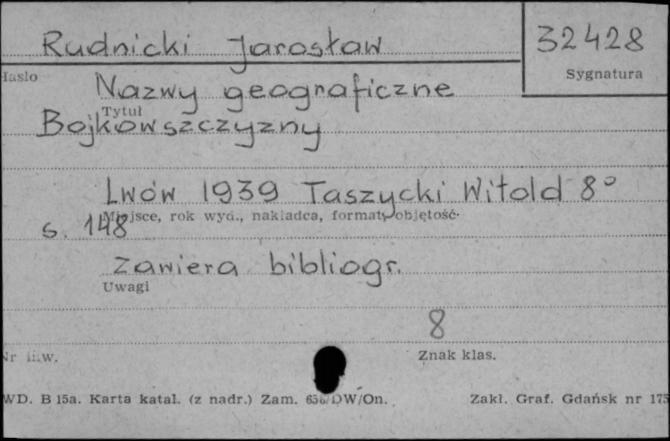 Rudnicki Jarosław
32428
Hasło
Sygnatura
Nazwy geograficzne
Tytuł
Bojkowszczyzny
Lwów 1939 Taszycki Witold 8°
Miejsce, rok wyd., nakładca, format, objętość
s. 148
Zawiera bibliogr.
Uwagi
8
Nr inw.
Znak klas.
WD. B 15a. Karta katal. (z nadr.) Zam. DW/On.
Zakł. Graf. Gdańsk nr 175